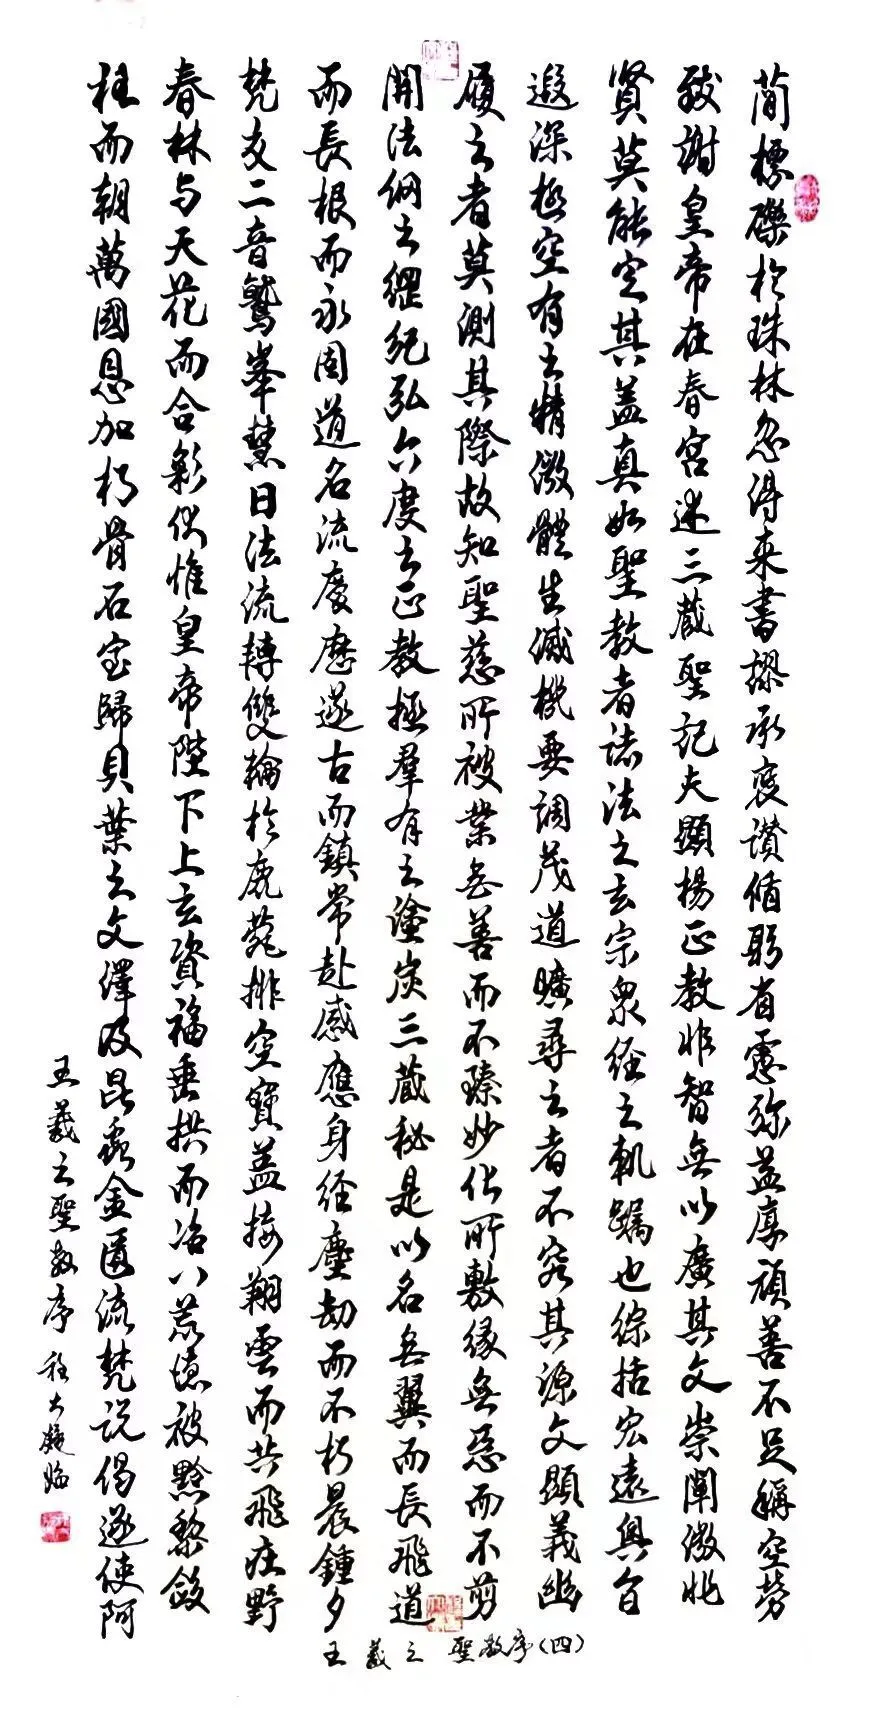 簡標礫於珠林忽得來書謬承褒讚循躬省慮弥益厚顔善不足稱空勞
致謝皇帝在春宮述三藏聖記夫顯揚正教非智無以廣其文崇闡微非
賢莫能定其盖真如聖教者諸法之玄宗眾經之軌躅也綜括宏遠奧旨
遐深極空有之精微體生滅機要詞茂道曠尋之者不究其源文顯義幽
履之者莫測其際故知聖慈所被業無善而不臻妙化所敷緣無惡而不剪
開法網之綱紀弘六度之正教拯羣有之塗炭三藏秘是以名無翼而長飛道
而長根而永固道名流慶歷遂古而鎮常赴感應身經塵劫而不朽晨鍾夕
梵交二音鷲峯慧日法流轉雙輪於鹿菀排空寶盖接翔雲而共飛庄野
春林与天花而合彩伏惟皇帝陛下上玄資福垂拱而治八荒德被黔黎斂
衽而朝萬國恩加朽骨石室歸貝葉之文澤及昆虫金匱流梵說偈遂使阿
王羲之聖教序 程大 臨
王羲之 聖教序(四)